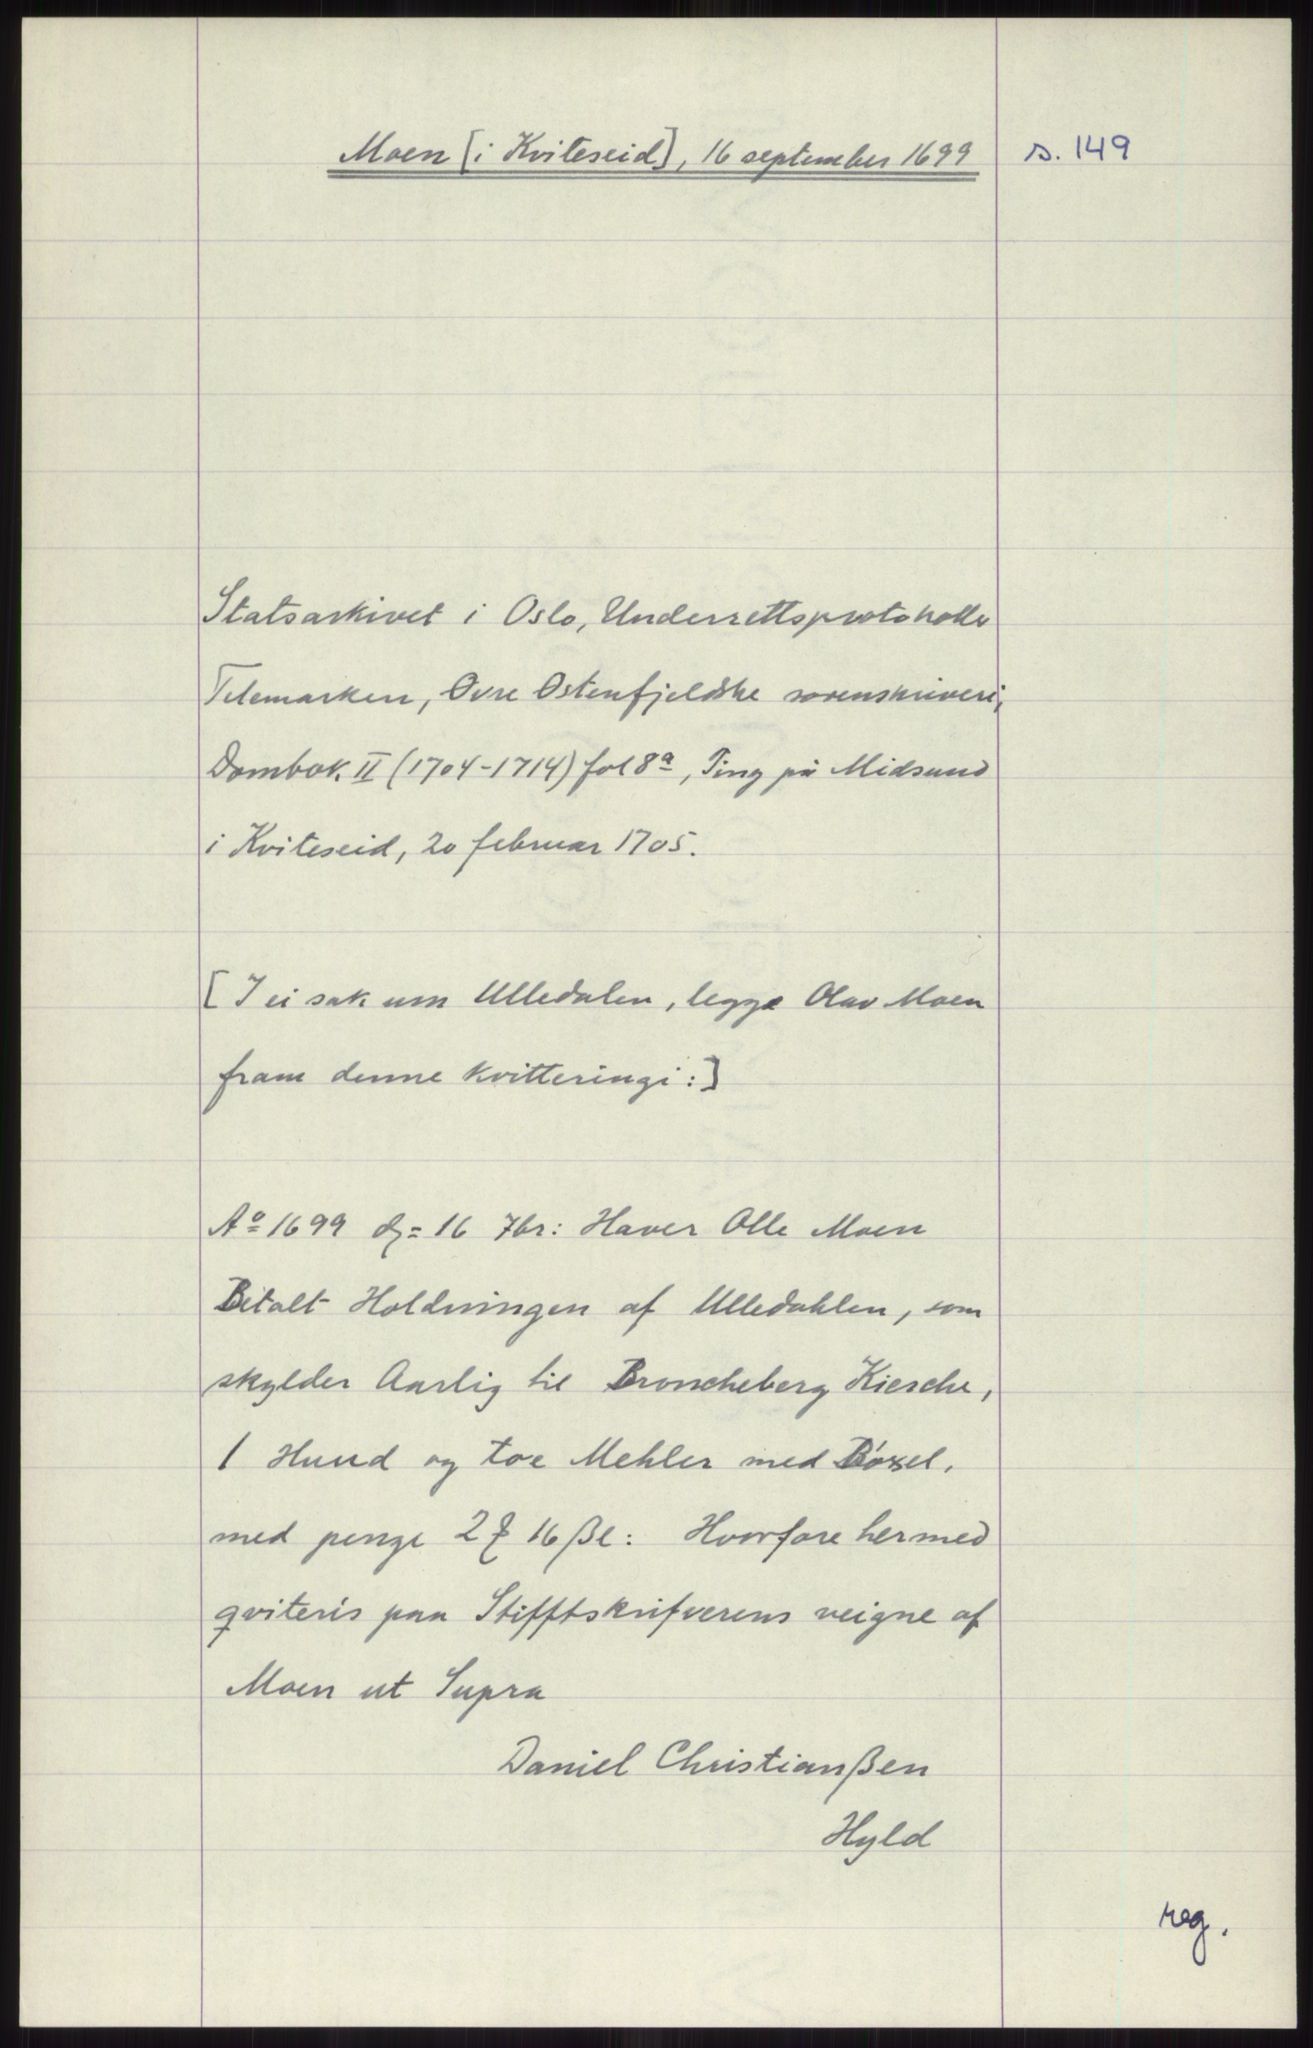 Moen [i Kviteseid], 16 september 1699
s. 149
Statsarkivet i Oslo, Underrettsprotokoller
Telemarken, Øvre Østenfjeldske sorenskriveri,
Dombok. II (1704-1714) fol 8a, Ting på Midsund
i Kviteseid, 20 februar 1705.
[I ei sak um Ulledalen, legge Olav Moen
fram denne kvitteringi:]
Ao 1699 d= 16 7br: Haver Olle Moen
Betalt Holdningen af Ulledahlen, som
skylder Aarlig til Broncheberg Kiesche,
1 Huud og toe Mehler med Bóxel,
med penge 2 16 ßl: Hvorfore hermed
qviteris paa Stifftskrifverens veigne af
Moen ut Supra
Daniel Christianßen
Hyld
reg.